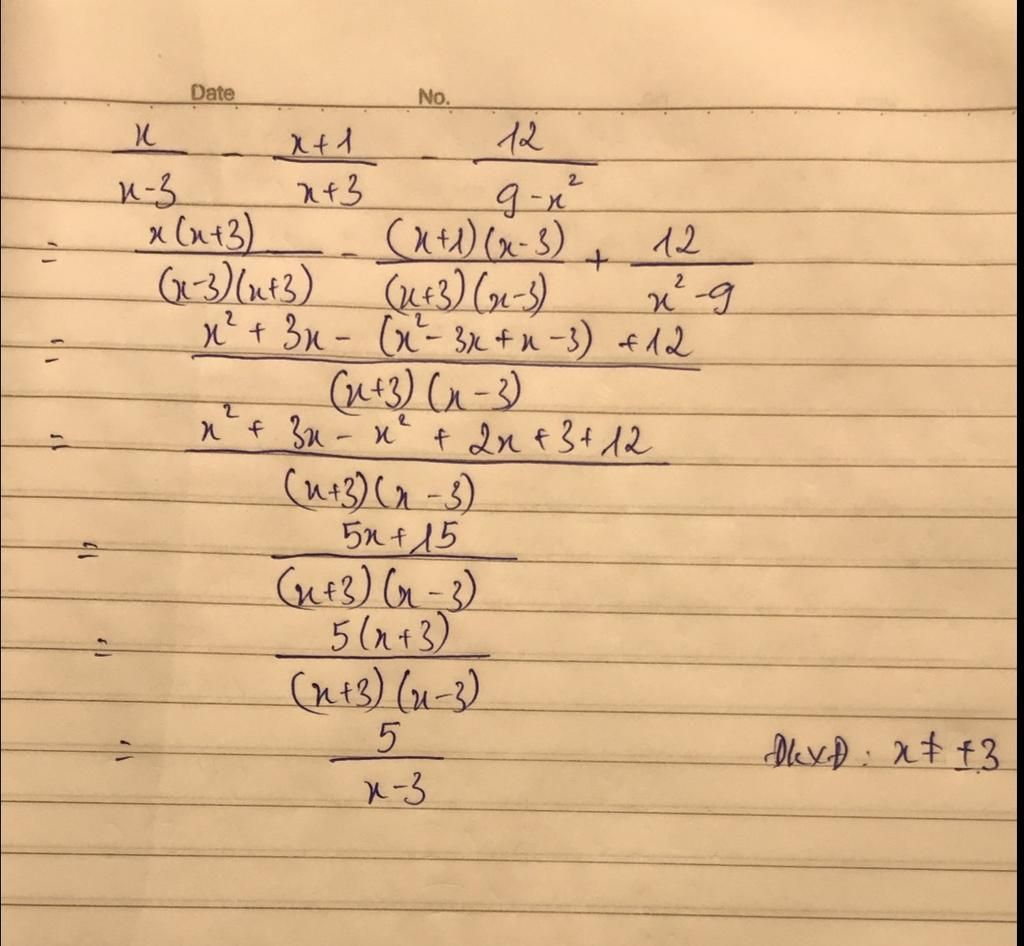 Date No.
x/(x-3) - (x+1)/(x+3) - 12/(9-x²)
= x(x+3)/((x-3)(x+3)) - (x+1)(x-3)/((x+3)(x-3)) + 12/(x²-9)
= (x² + 3x - (x² - 3x + x - 3) + 12)/((x+3)(x-3))
= (x² + 3x - x² + 2x + 3 + 12)/((x+3)(x-3))
= (5x + 15)/((x+3)(x-3))
= 5(x+3)/((x+3)(x-3))
= 5/(x-3) ĐKXĐ: x ≠ ±3